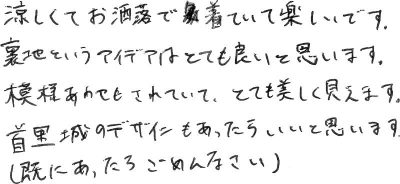 涼しくてお洒落で着ていて楽しいです。
裏地というアイデアはとても良いと思います。
模様あわせもされていて、とても美しく見えます。
首里城のデザインもあったらいいと思います
(既にあったらごめんなさい)